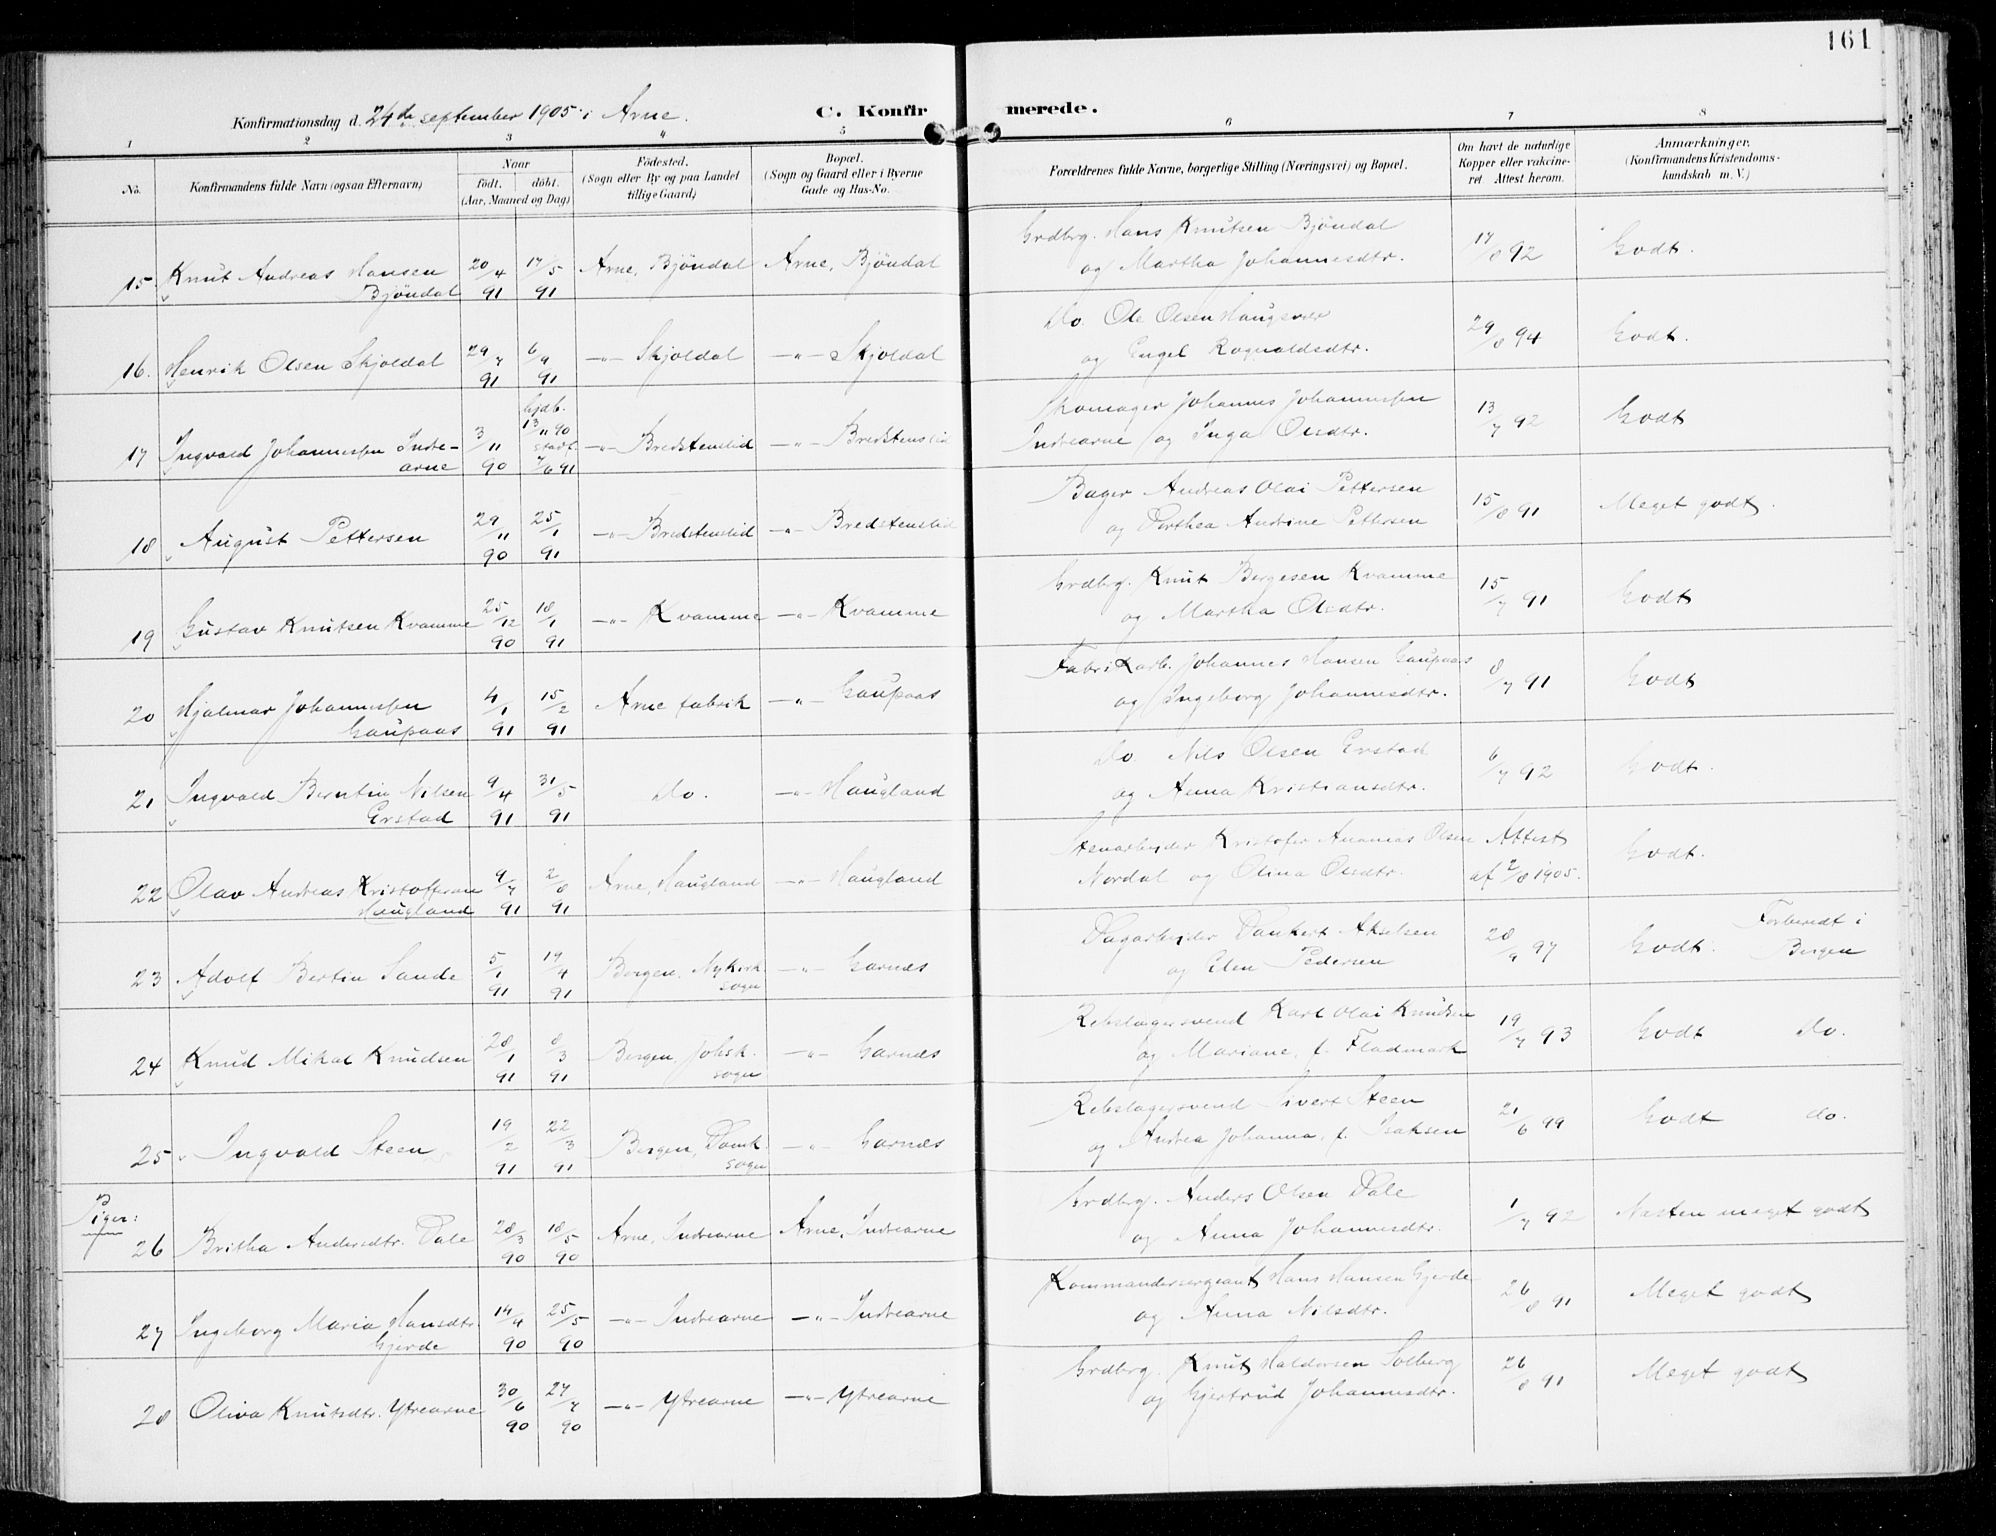 161
Konfirmationsdag d. 24de september 1905 i Arne.
C. Konfirmerede.
1 2 3 4 5 6 7 8
No. Konfirmandens fulde Navn (ogsaa Efternavn) Naar født. døbt. (Aar, Maaned og Dag) Fødested. (Sogn eller By og paa Landet tillige Gaard) Bopæl. (Sogn og Gaard eller i Byerne Gade og Hus-No. Forældrenes fulde Navne, borgerlige Stilling (Næringsvei) og Bopæl. Om havt de naturlige Kopper eller vakcineret Attest herom. Anmærkninger. (Konfirmandens Kristendomskundskab m. V.)
15 Knut Andreas Hansen Bjöndal 20/4 91 17/5 91 Arne, Bjöndal Arne, Bjöndal Grdbrg. Hans Knutsen Bjöndal og Martha Johannesdtr. 17/8 92 Godt.
16. Henrik Olsen Skjoldal 29/7 91 6/9 91 —"— Skjoldal —"— Skjoldal Do. Ole Olsen Haugsvær og Engel Rognaldsdtr. 29/8 94 Godt.
17 Ingvald Johannessen Indrearne 3/11 90 hjdb. 13/11 90 stadf. 7/6 91 —"— Bredstenslid —"— Bredstenslid Skomager Johannes Johannessen Indrearne og Inga Olsdtr. 13/7 92 Godt
18 August Pettersen 29/11 90 25/1 91 —"— Bredstenslid —"— Bredstenslid Bager Andreas Olai Pettersen og Dorthea Andrine Pettersen 15/8 91 Meget godt.
19 Gustav Knutsen Kvamme 25/12 90 18/1 91 —"— Kvamme —"— Kvamme Grdbrg. Knut Bergesen Kvamme og Martha Olsdtr. 15/7 91 Godt
20 Hjalmar Johannessen Gaupaas 4/1 91 15/2 91 Arne fabrik —"— Gaupaas Fabrikarb. Johannes Hansen Gaupaas og Ingeborg Johannesdtr. 8/7 91 Godt
21 Ingvald Berntin Nilsen Erstad 9/4 91 31/5 91 Do. —"— Haugland Do. Nils Olsen Erstad og Anna Kristiansdtr. 6/7 92 Godt.
22 Olav Andreas Kristoffersen Haugland 9/7 91 2/8 91 Arne, Haugland —"— Haugland Stenarbeider Kristofer Ananias Olsen Nordal og Olina Olsdtr. Attest af 2/8 1905. Godt.
23 Adolf Bertin Sande 5/1 91 19/4 91 Bergen, Nykirk. sogn —"— Garnæs Dagarbeider Dankert Akselsen og Elen Pedersen 28/9 97 Godt. Forberedt i Bergen
24 Knud Mikal Knudsen 28/1 91 8/3 91 Bergen, Johsk. sogn —"— Garnæs Rebslagersvend Karl Olai Knudsen og Mariane, f. Fladmark 19/7 93 Godt Do.
25 Ingvald Steen 19/2 91 22/3 91 Bergen, Domk. sogn —"— Garnæs Rebslagersvend Sivert Steen og Andrea Johanna, f. Isaksen 21/6 99 Godt do.
Piger:
26 Britha Andersdtr. Dale 28/3 90 18/5 90 Arne, Indrearne Arne, Indrearne Grdbrg. Anders Olsen Dale og Anna Johannesdtr. 1/7 92 Næsten meget godt
27 Ingeborg Maria Hansdtr. Gjerde 14/4 90 25/5 90 —"— Indrearne —"— Indrearne Kommandersergeant Hans Hansen Gjerde og Anna Nilsdtr. 26/8 91 Meget godt
28 Oliva Knutsdtr. Ytrearne 30/6 90 27/7 90 —"— Ytrearne —"— Ytrearne Grdbrg. Knut Haldorsen Solberg og Gjertrud Johannesdtr. 26/8 91 Meget godt